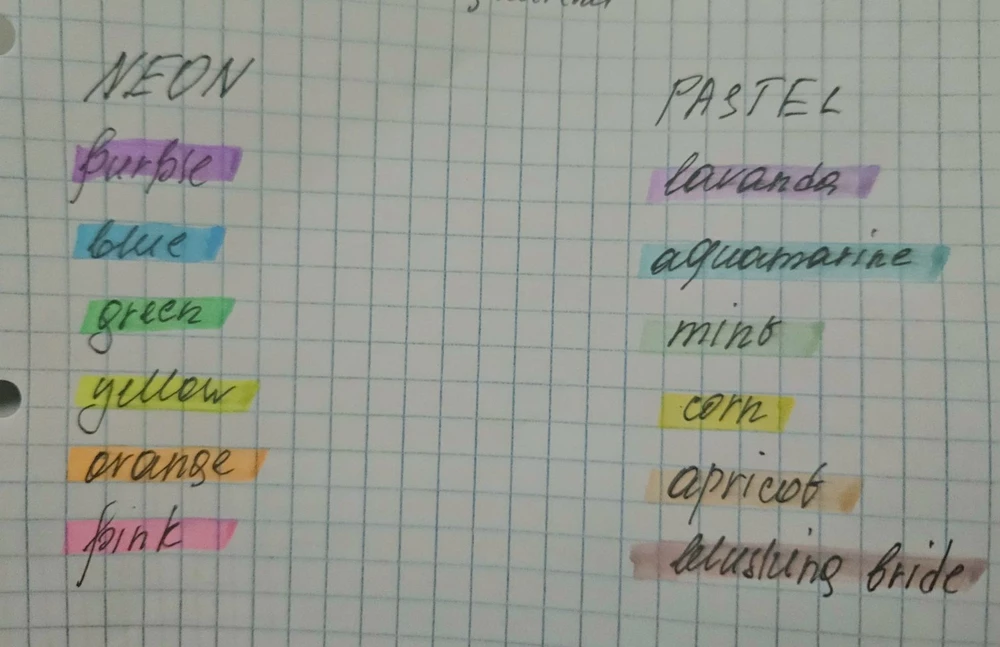 NEON
purple
blue
green
yellow
orange
pink
PASTEL
lavanda
aquamarine
mint
corn
apricot
blushing bride